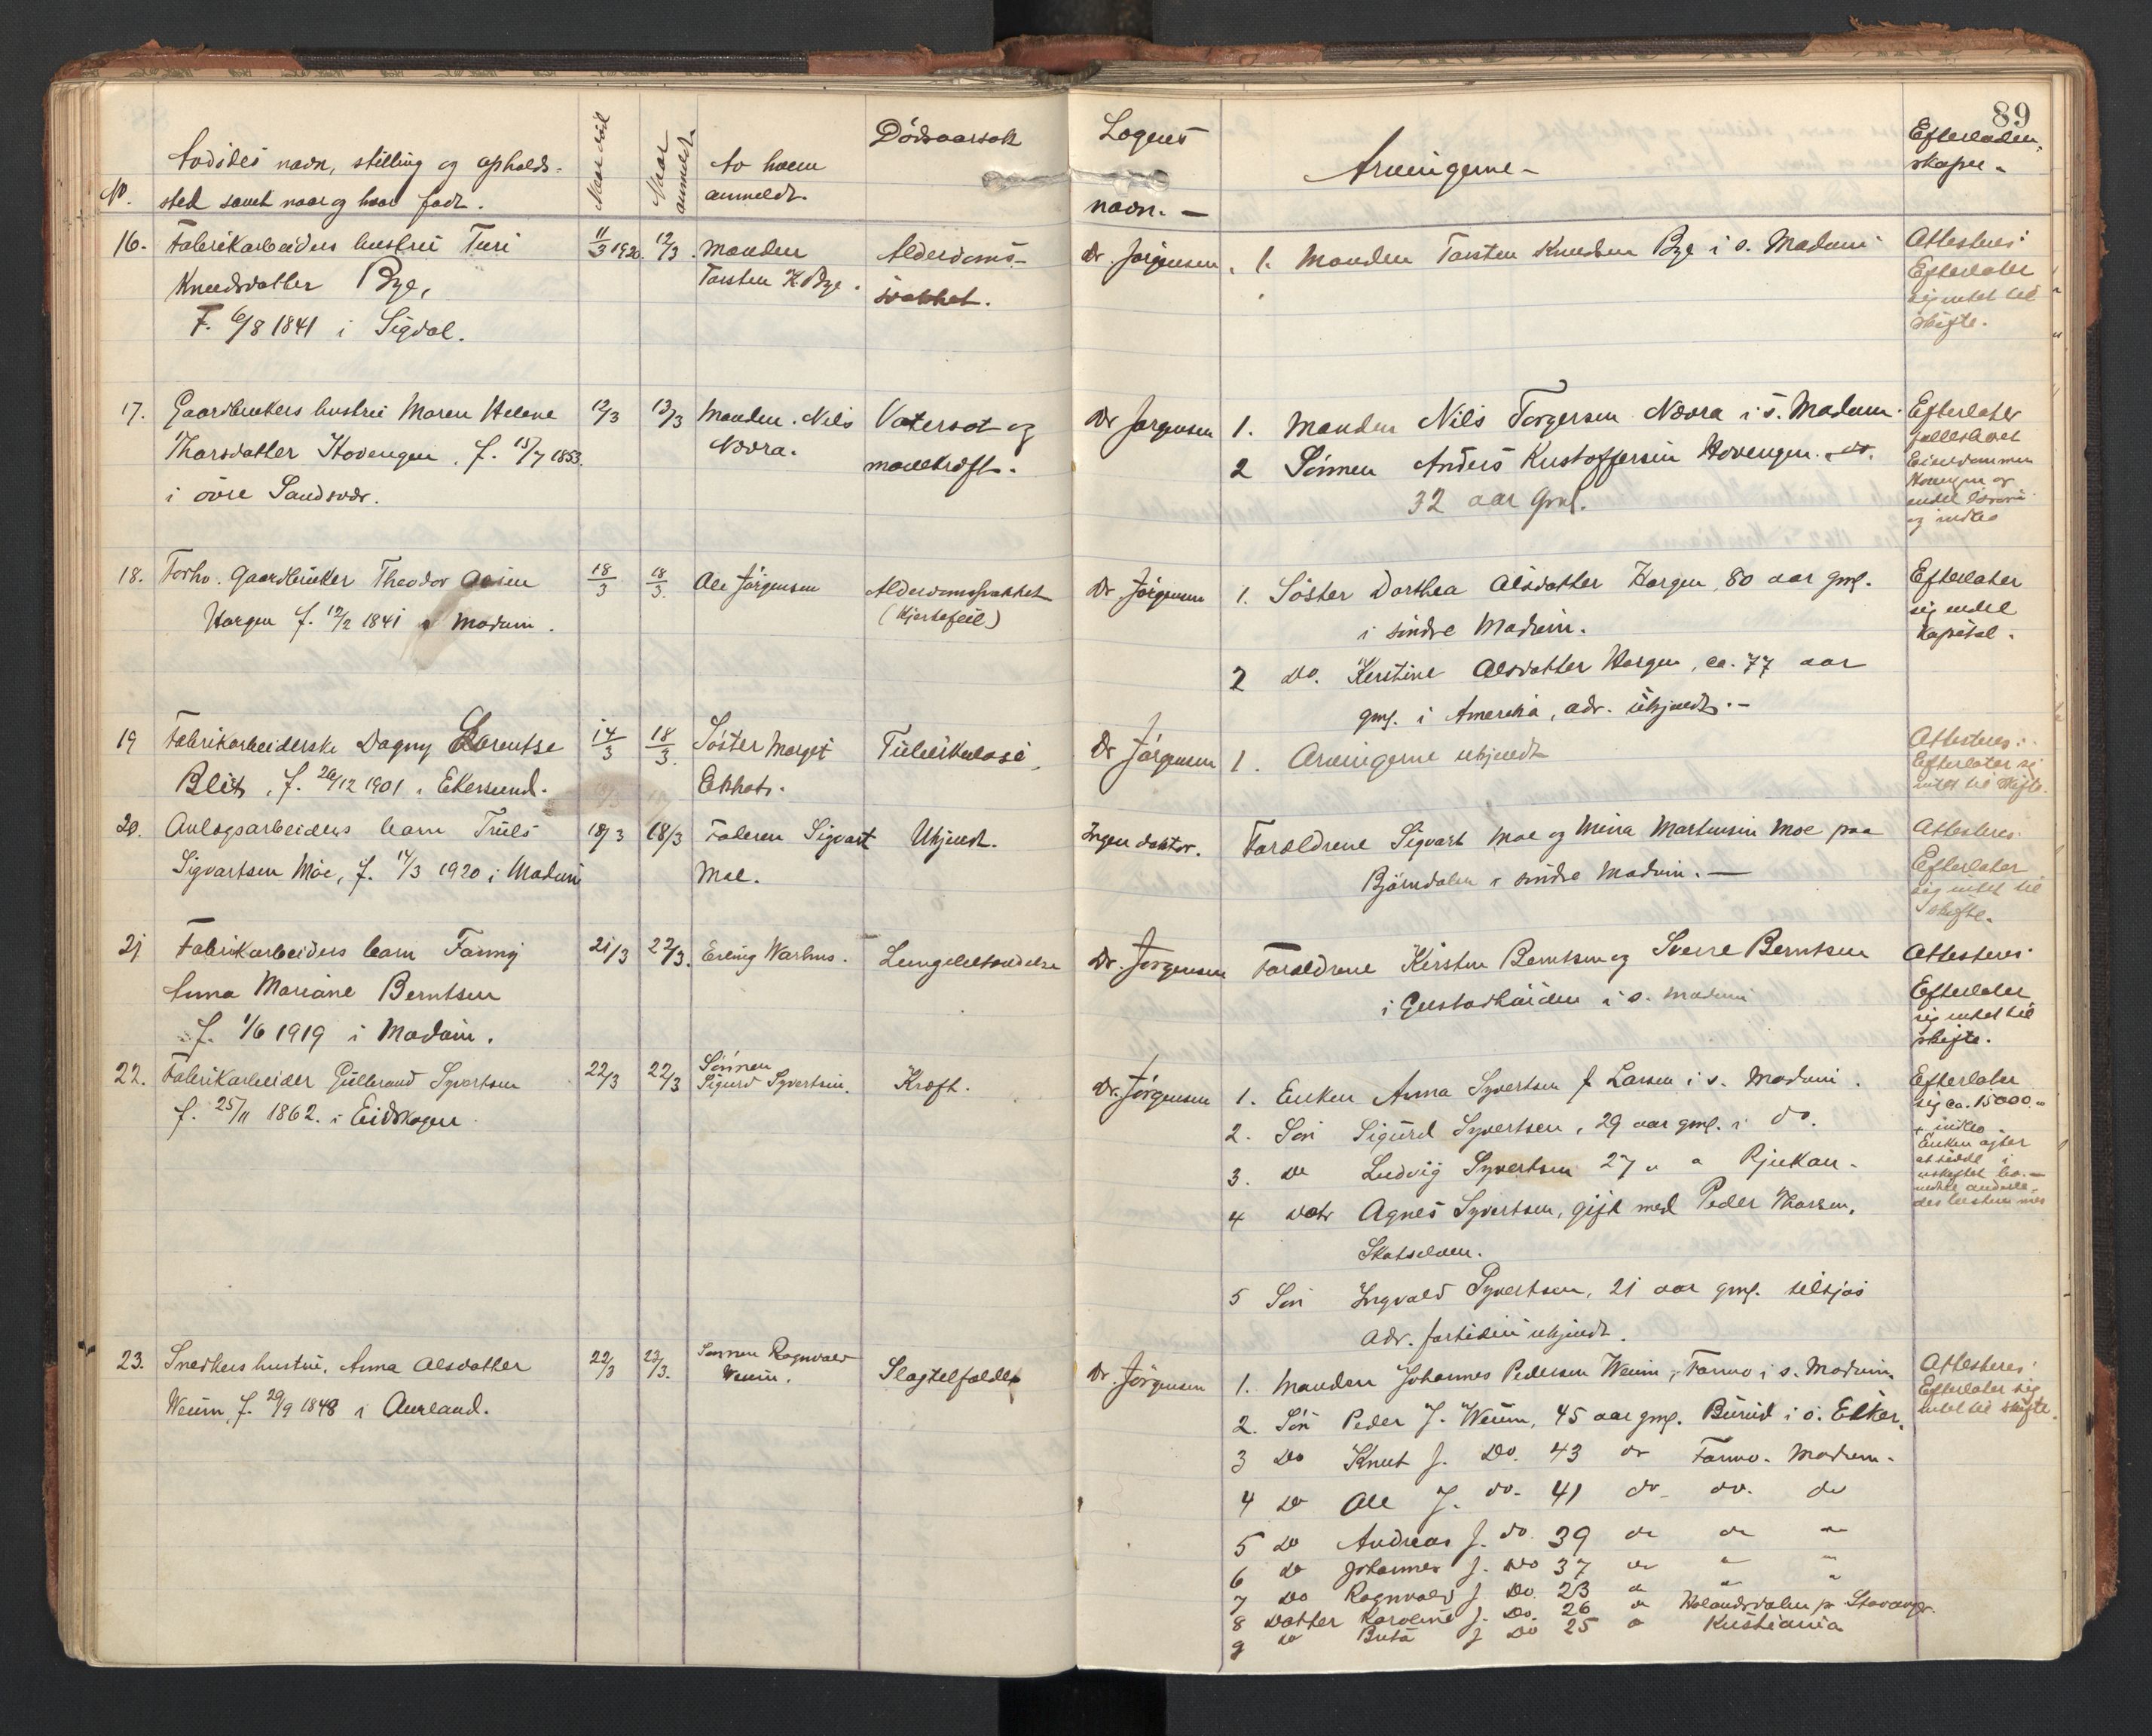 89
No. Avdødes navn, stilling og opholds-
sted samt naar og hvor født.
Naar død
Naar anmeldt
Av hvem
anmeldt.
Dödsaarsak
Lægens
navn. —
Arvingerne -
Efterladen-
skaper -
16. Fabrikarbeiders hustru Turi
Knudsdatter Bye,
F. 6/8 1841 i Sigdal.
11/3 1920. 12/3.
Manden
Torsten K. Bye.
Alderdoms-
svakhet.
Dr. Jörgensen.
1. Manden Torsten Knudsen Bye i s. Modum
Attesteres:
Efterlater
sig intet til
skifte.
17. Gaardbrukers hustru Maren Helene
Thorsdatter Hovengen, f. 15/7 1853.
i övre Sandsvær.
12/3 13/3
Manden. Nils
Navra.
Vatersot og
mavekræft.
Dr Jørgensen
1. Manden Nils Torgersen Navra i s. Modum.
2 Sönnen Anders Kristoffersen Hovengen. do.
32 aar gml.
Efterlater
fællesboet
Eiendommen
Hovengen og
endel lösöre
og indbo
18. Forhv. Gaardbruker Theodor Olsen
Horgen f. 12/2 1841 i Modum.
18/3 18/3.
Ole Jörgensen
Alderdomssvakhet
(Hjertefeil)
Dr. Jörgensen
1. Söster Dorthea Olsdatter Horgen, 80 aar gml.
i söndre Modum.
2 do. Kristine Olsdatter Horgen, ca. 77 aar
gml. i Amerika, adr. ukjendt. -
Efterlater
sig endel
Kapital.
19 Fabrikarbeiderske Dagny Lorentse
Blix, f. 26/12 1901 i Ekersund.
14/3 18/3.
Söster Margit
Eknots.
Tuberkulose,
Dr Jörgensen
1. Arvingerne ukjendt
Attesteres:
Efterlater sig
intet til skifte.
20. Anlægsarbeiders barn Truls
Sigvartsen Moe, f. 14/3 1920 i Modum
18/3 18/3
Faderen Sigvart
Moe.
Ukjendt.
Ingen doktor.
Forældrene Sigvart Moe og Mina Martinsen Moe paa
Björndalen i söndre Modum. —
Attesteres.
Efterlater
sig intet til
skifte.
21 Fabrikarbeiders barn Fanny
Anna Mariane Berntsen
f. 1/6 1919 i Modum.
21/3 22/3.
Erling Warhus.
Lungebetændelse
Dr. Jørgensen
Forældrene Kirsten Berntsen og Sverre Berntsen
i Gustadhöiden i s. Modum
Attesteres
Efterlater
sig intet til
skifte.
22. Fabrikarbeider Gulbrand Syvertsen
f. 25/11 1862. i Eidskogen
22/3 22/3
Sönnen
Sigurd Syvertsen.
Kræft.
Dr. Jörgensen
1. Enken Anna Syvertsen f Larsen i s. Modum.
2. Sön Sigurd Syvertsen, 29 aar gml. i do.
3. do Ludvig Syvertsen 27 " " Rjukan.
4 Datr Agnes Syvertsen, gift med Peder Thorsen,
Skotselven.
5 Sön Ingvald Syvertsen, 21 aar gml. tilsjös
adr. fortiden ukjendt.
Efterlater
sig ca. 15000.-
+ indbo
Enken agter
at sidde i
uskiftet bo. -
23. Snedkers hustru, Anna Olsdatter
Weum, f. 29/9 1848 i Aurland.
22/3 23/3.
Sønnen Ragnvald
Weum.
Slagtilfælde
Dr. Jörgensen
1. Manden Johannes Pedersen Weum, Formo i s. Modum.
2. Sön Peder J. Weum, 45 aar gml. Burud i ö. Eiker.
3 Do Knut J. Do. 43 do Formo. Modum.
4 Do Ole J. do. 41 do do. do
5 Do Andreas J. do. 39 do do "
6 do Johannes J. Do 37 do " "
7 Do Ragnvald J Do. 23 " " "
8 Datter Karoline J. Do. 26 " Holandsdalen pr Stavanger.
9 do Brita J Do 25 " Kristiania
Attesteres:
Efterlater sig
intet til skifte.